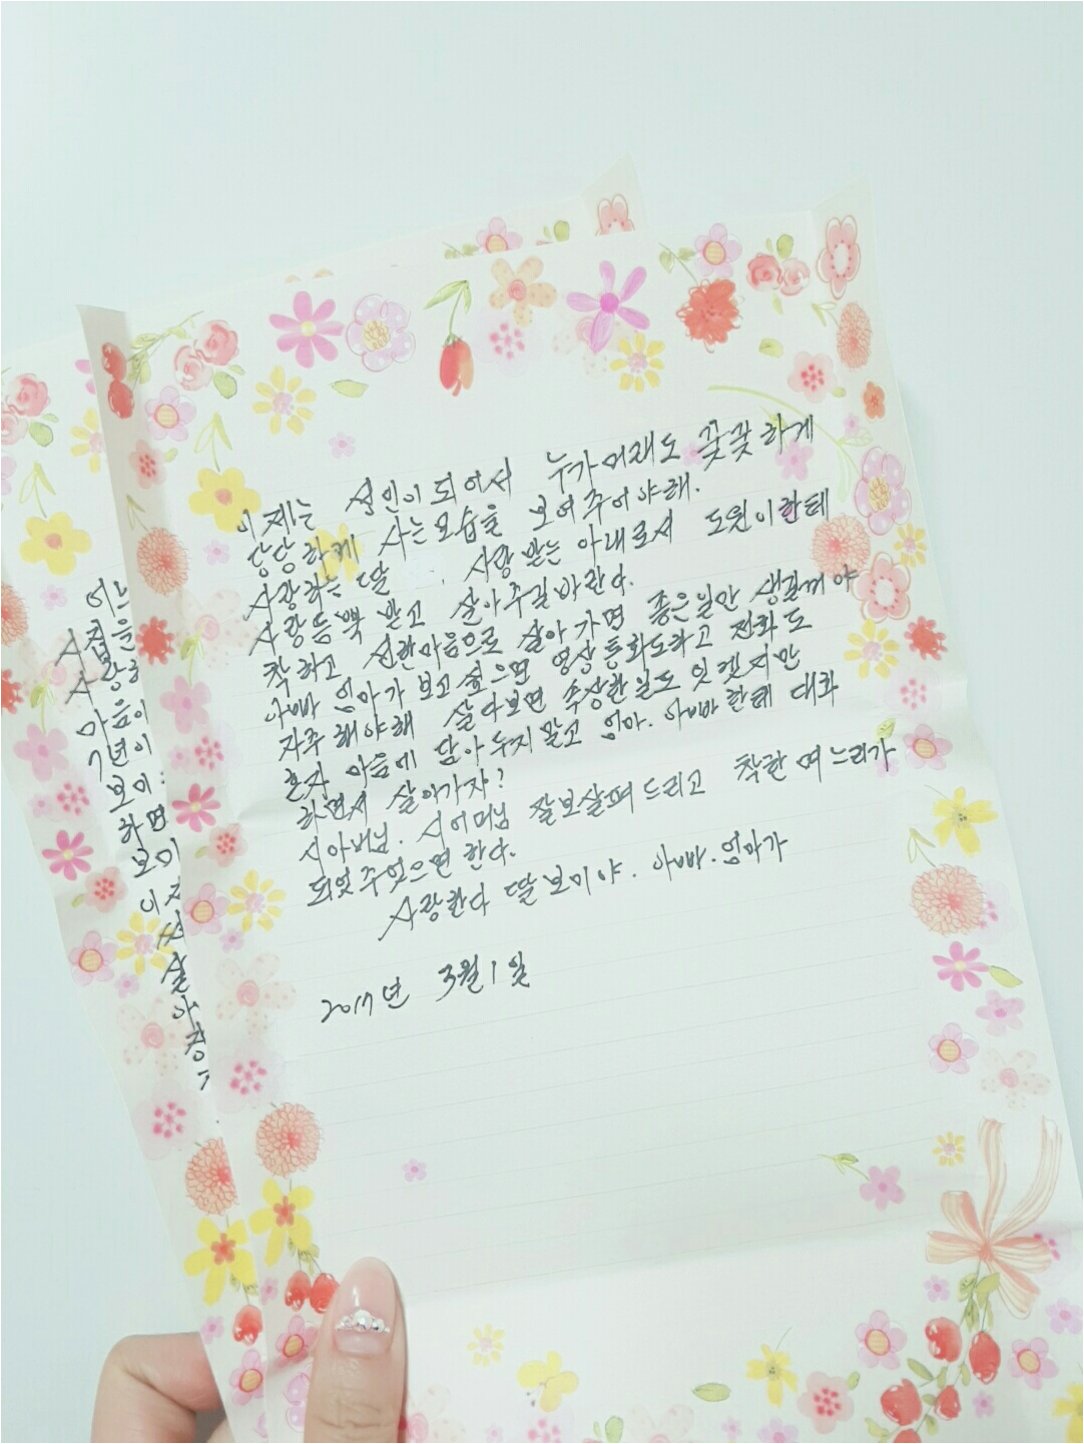 이제는 성인이 되어서 누가머래도 꽃꽃하게
당당하게 사는모습을 보여주어야해.
사랑하는 딸 사랑받는 아내로서 도원이한테
사랑듬뿍 받고 살아주길바란다.
착하고 선한마음으로 살아가면 좋은일만 생길꺼야
아빠 엄마가 보고싶으면 영상통화도하고 전화도
자주해야해 살다보면 속상한일도 잇겟지만
혼자 마음에 담아두지말고 엄마. 아빠한테 대화
하면서 살아가자!
시아버님. 시어머님 잘보살펴드리고 착한며느리가
되엇주엇으면 한다.
사랑한다 딸보미야. 아빠.엄마가
2017년 3월1일
어느
시집을
사랑하
마음이
7년이
보미
하면
보미
이제
살
아